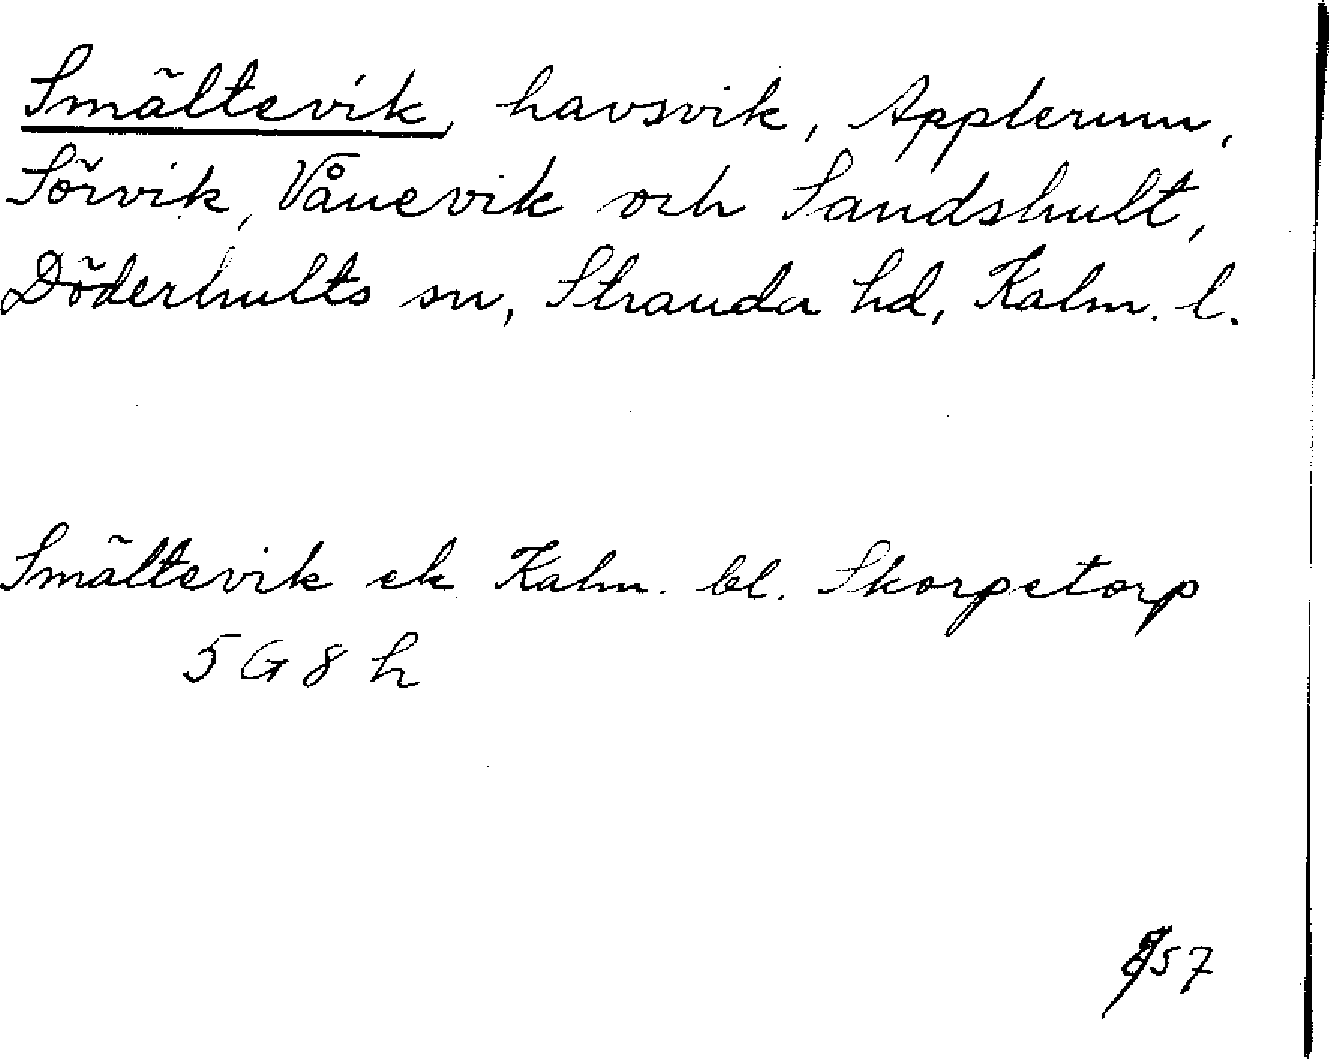 Smältevik, havsvik, Applerum,
Sörvik, Vånevik och Sandshult,
Döderhults sn, Stranda hd, Kalm. l.
Smältevik ek Kalm. bl. Skorpetorp
5 G 8 h
57